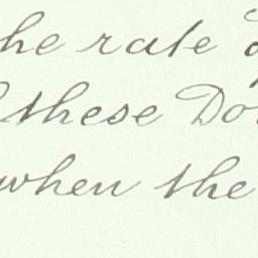 he rate
these Do
when the